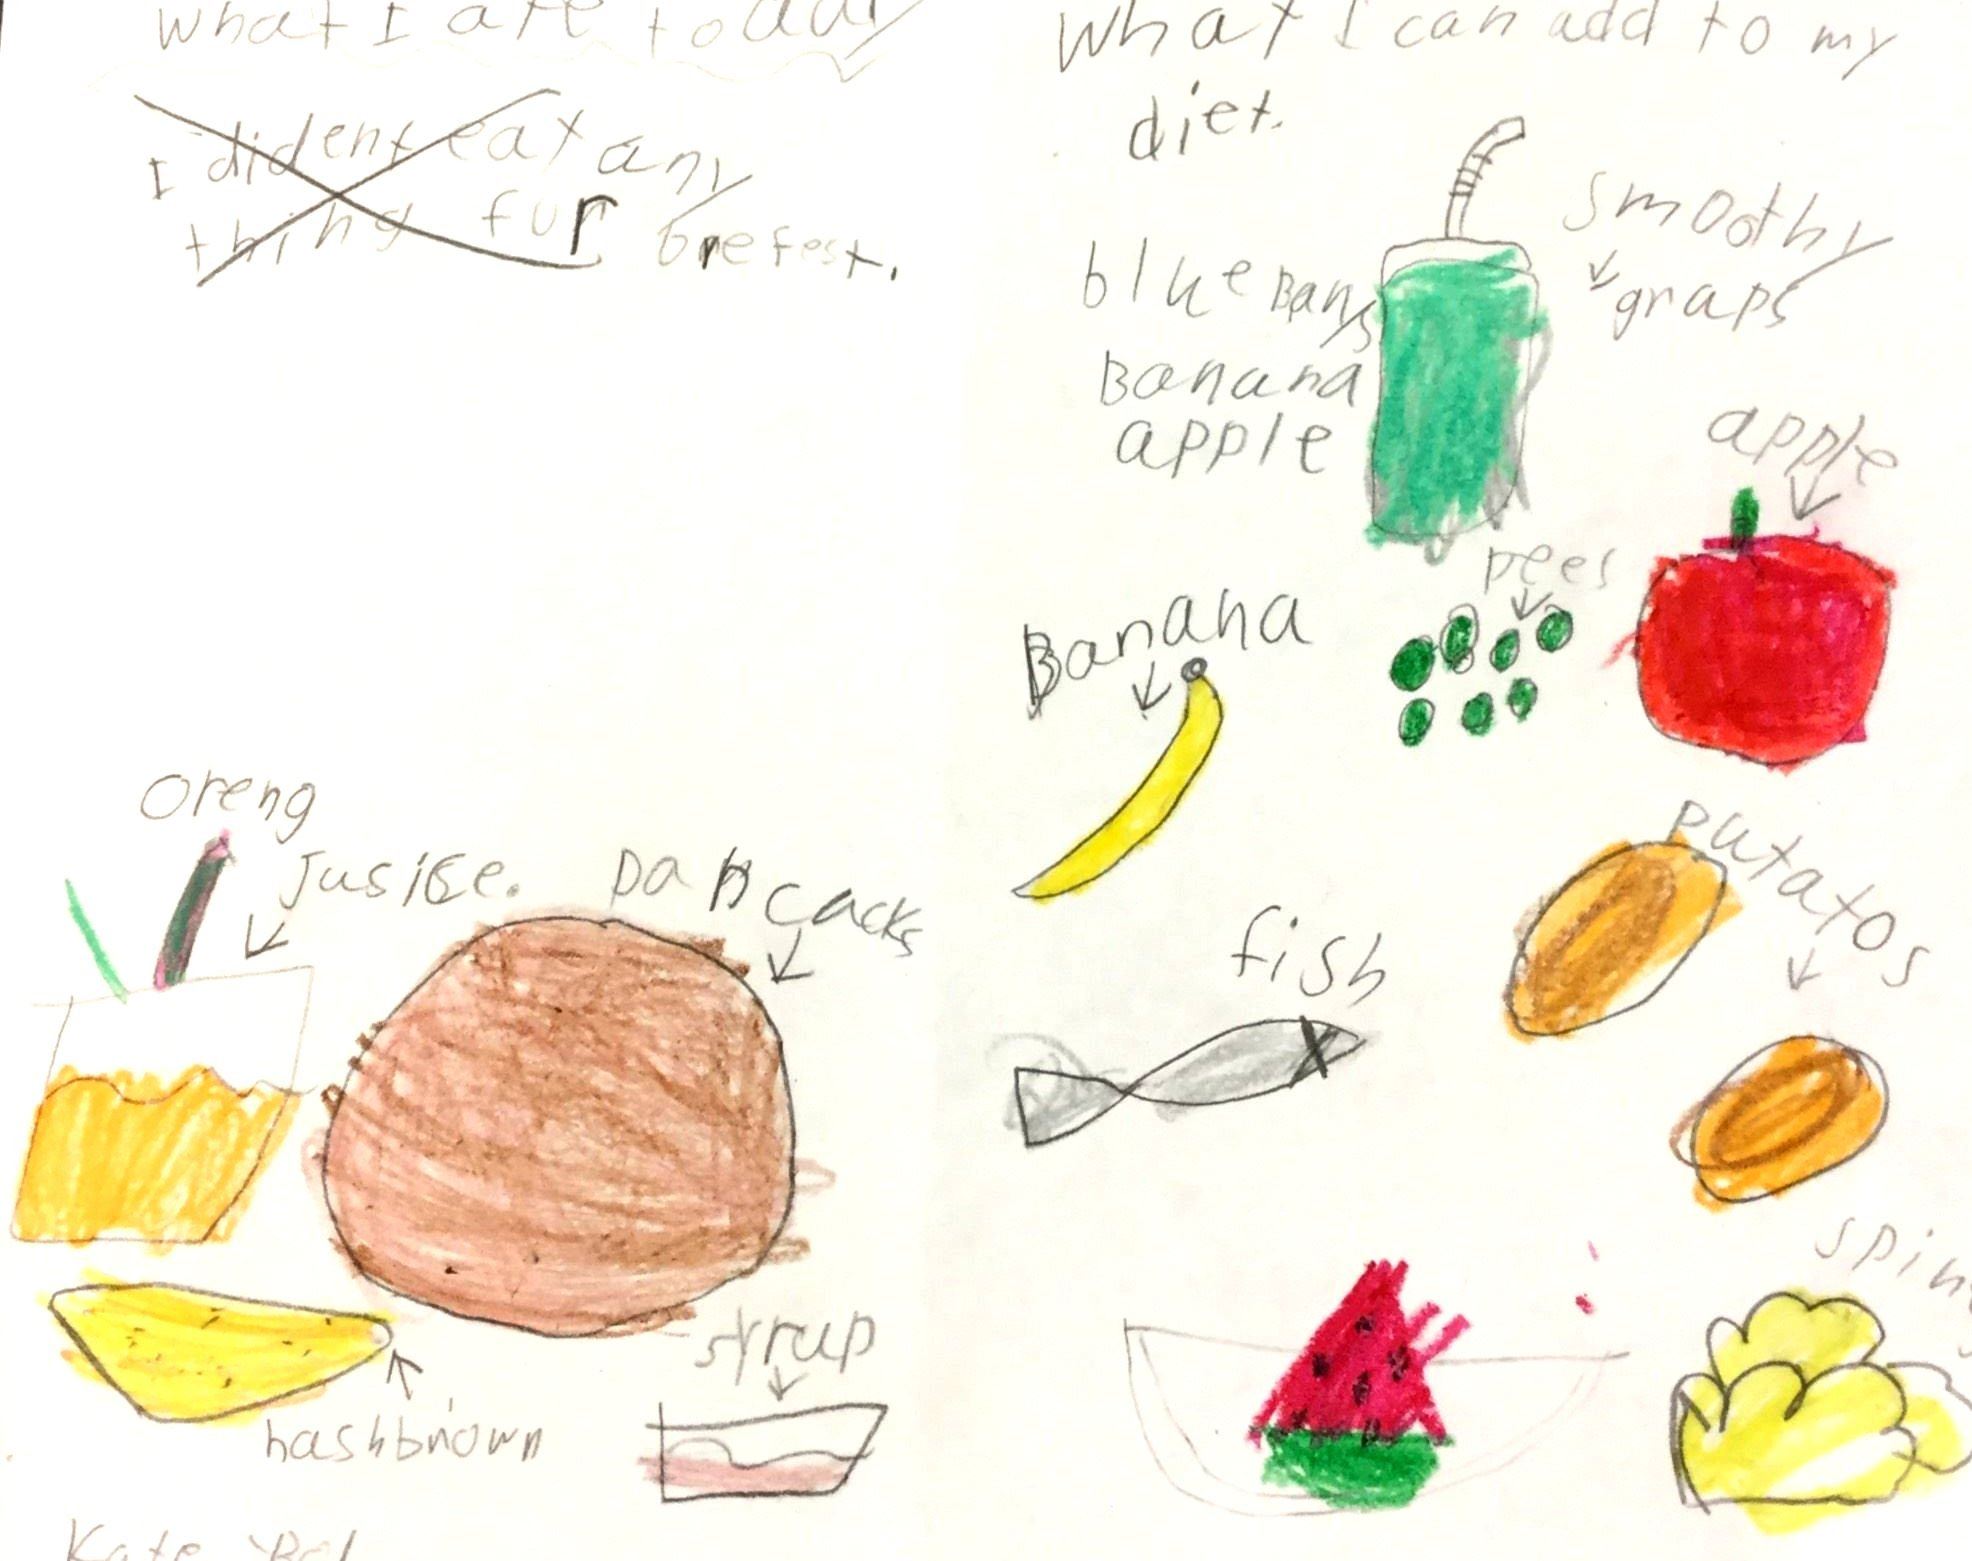 What I ate today
I dident eat any
thing fur brefest.
oreng
Jusice.
pancacks
syrup
hashbrown
Kate
What I can add to my
diet.
smoothy
graps
blue
Banana
apple
apple
pees
Banana
putatos
fish